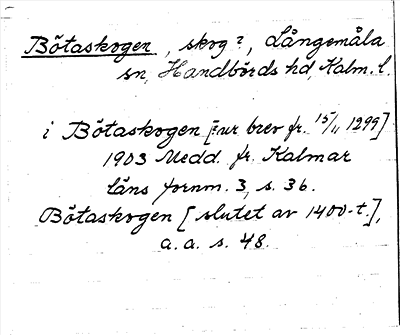 Bötaskogen, skog?, Långemåla
sn, Handbörds hd, Kalm. l.
i Bötaskogen [: ur brev fr. 15/11 1299]
1903 Medd. fr. Kalmar
läns fornm. 3, s. 36.
Bötaskogen [slutet av 1400-t.],
a. a. s. 48.